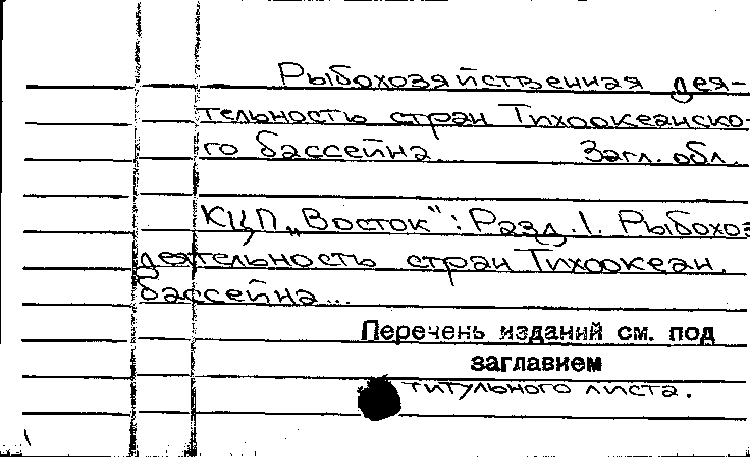 Рыбохозяйственная дея-
тельность стран Тихоокеанско-
го бассейна... Загл. обл.
КЦП „Восток": Разд. 1. Рыбохоз
деятельность стран Тихоокеан.
бассейна...
Перечень изданий см. под
заглавием
титульного листа.